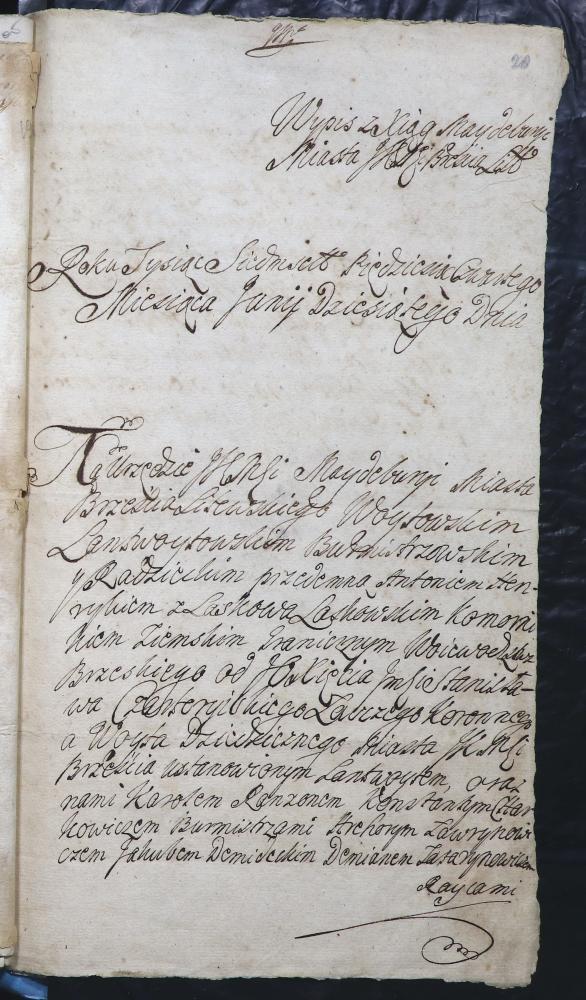 20
Wypis z Xiąg Maydeburij
Miasta JKMci Brescia Litt
Roku Tysiąc Siedmsett Piędziesią Czwartego
Miesiąca Junij Dziesiątego Dnia
Na Urzędzie JKMści Maydeburij Miasta
Brzescia Litewskiego Woytowskim
Lantwoytowskim Burmistrzowskim
y Radzieckim przedemną Antonim Hen-
rykiem z Laskowa Laskowskim Komorni
kiem Ziemskim Granicznym Woiewodztwa
Brzeskiego od JO Xięcia Jmści Stanisła-
wa Czartoryiskiego Łowczego Koronnego
a Woyta Dziedzicznego Miasta JKMści
Brześcia ustanowionym Lantwoytem, oraz
nami Karolem Ranzonem, Konstantym
kowiczem Burmistrzami Hrehorym Ławrynowi
czem Jakubem Demideckim Demianem Tatarynowiczem
Raycami